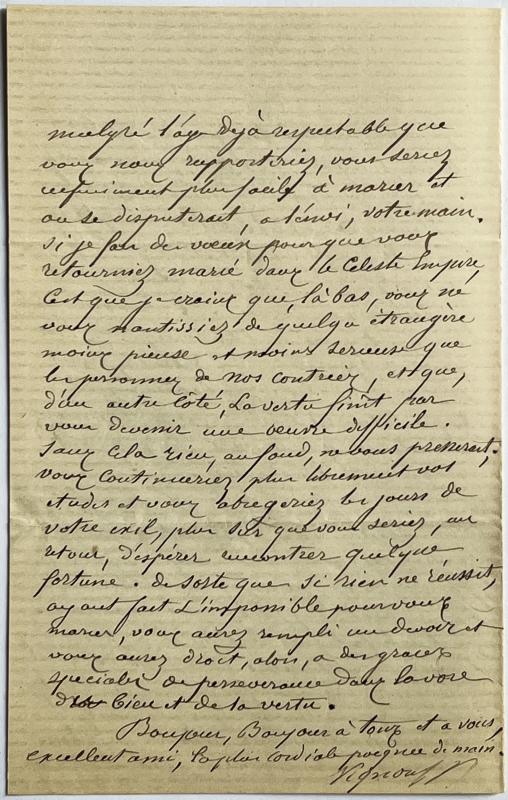 malgré l'âge déjà respectable que
vous nous rapporteriez, vous seriez
infiniment plus facile à marier et
on se disputerait, à l'envi, votre main.
Si je fais des vœux pour que vous
retourniez marié dans le Céleste Empire,
C'est que je crains que, là bas, vous ne
vous nantissiez de quelqu'étrangère
moins pieuse et moins sérieuse que
les personnes de nos contrées, et que,
d'un autre côté, La vertu finît par
vous devenir une œuvre difficile.
Sans cela rien, au fond, ne vous presserait.
vous continueriez plus librement vos
études et vous abrègeriez les jours de
votre exil, plus sûr que vous seriez, au
retour, d'espérer rencontrer quelque
fortune. de sorte que si rien ne réussit,
ayant fait L'impossible pour vous
marier, vous aurez rempli un devoir et
vous aurez droit, alors, a des graces
speciales de perseverance dans la voie
du bien et de la vertu.
Bonjour, Bonjour à tous et a vous,
excellent ami, la plus cordiale poignée de main.